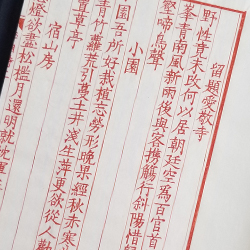 留題愛敬寺
野性竟未改何以居朝廷空為百官首
峯青南風新雨後與客攜觴行斜陽惜
壑啼鳥聲
小園
園吾所好栽植忘勞形晚果經秋赤寒
青竹蘿荒引蔓土井淺生萍更欲從人勸
置草亭
宿山房
燈欲盡松檻月還明就枕